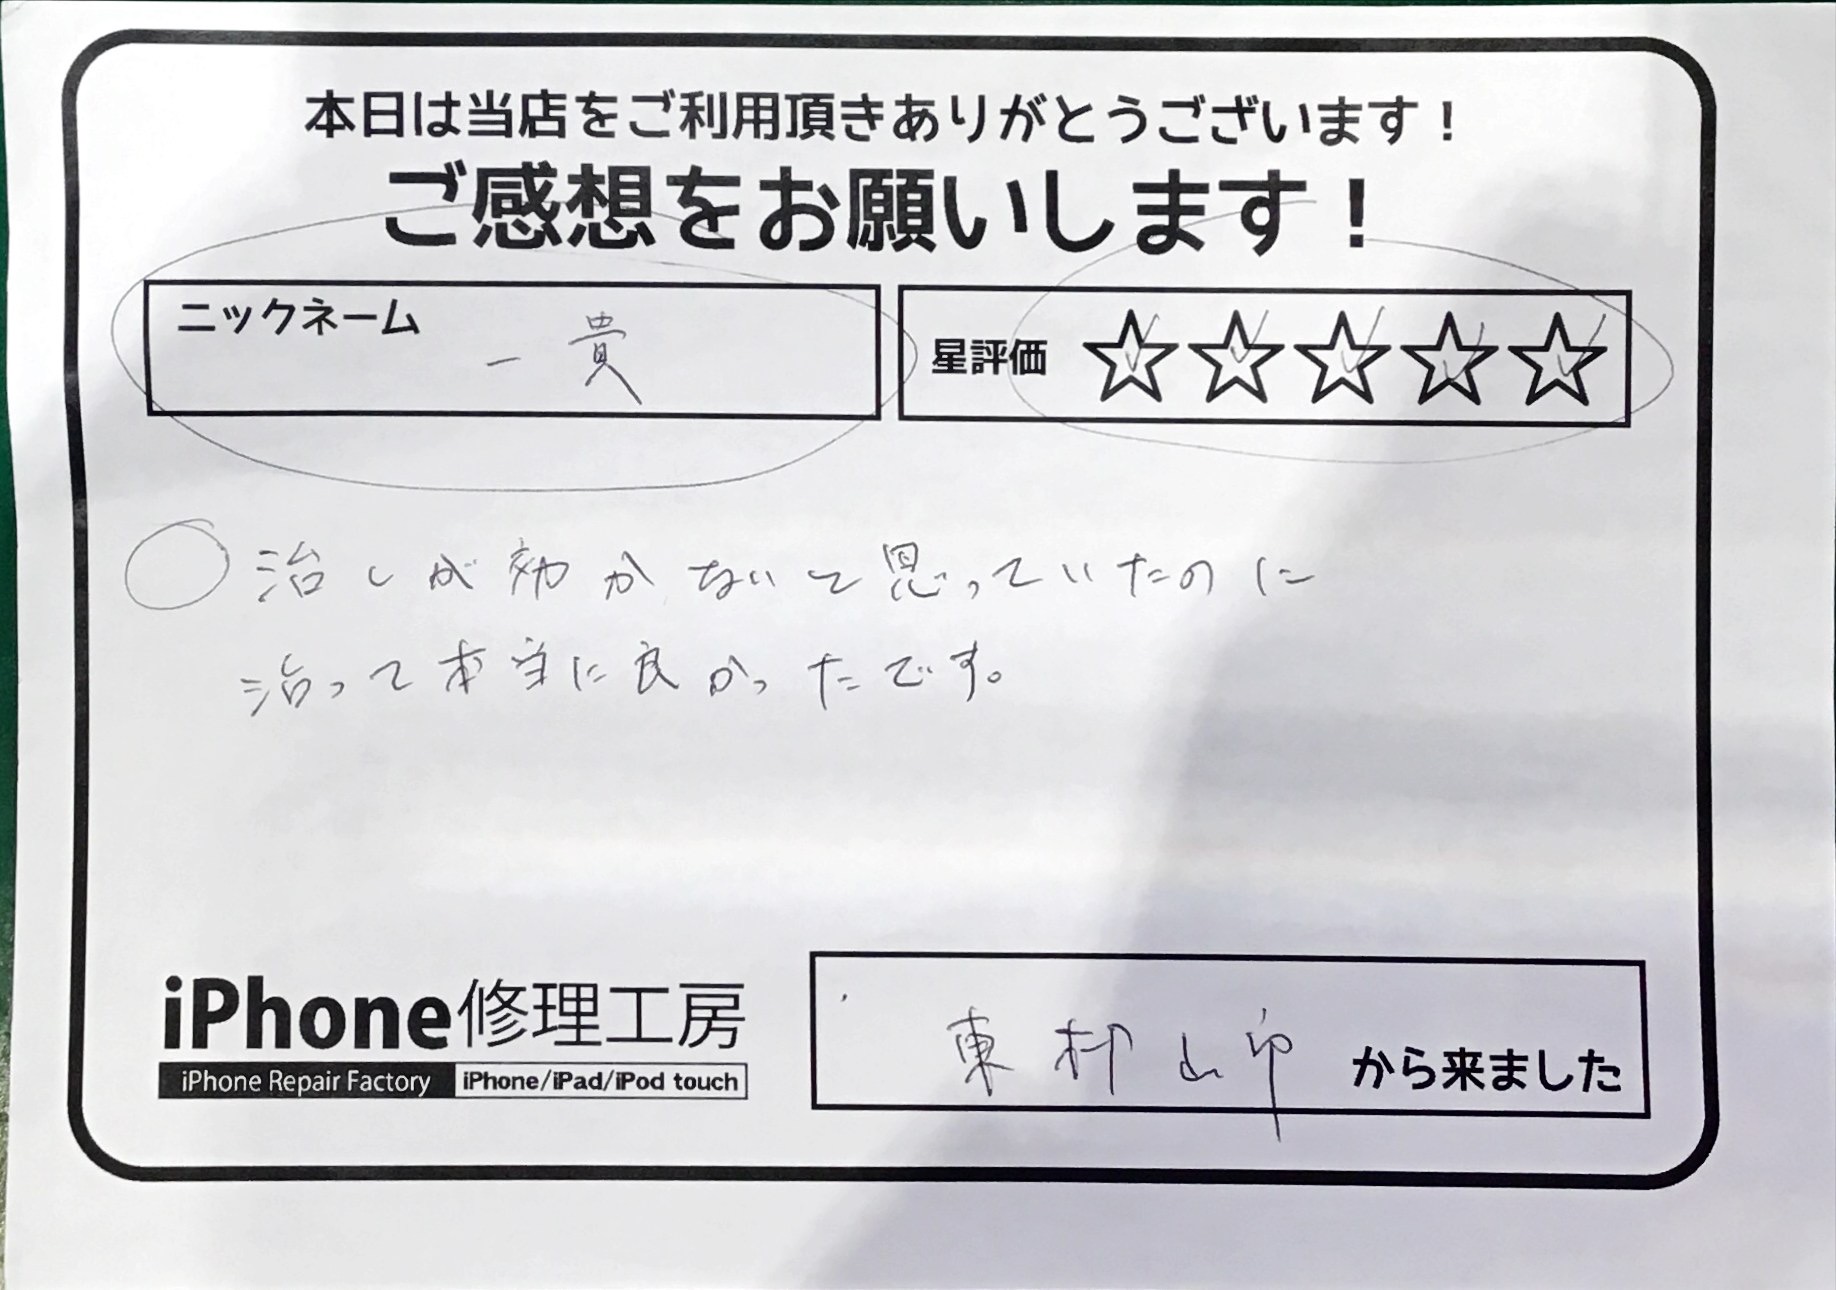 本日は当店をご利用頂きありがとうございます！
ご感想をお願いします！
ニックネーム 一貴
星評価 ☆☆☆☆☆
治しが効かないと思っていたのに
治って本当に良かったです。
iPhone修理工房
iPhone Repair Factory iPhone/iPad/iPod touch
東村山市 から来ました